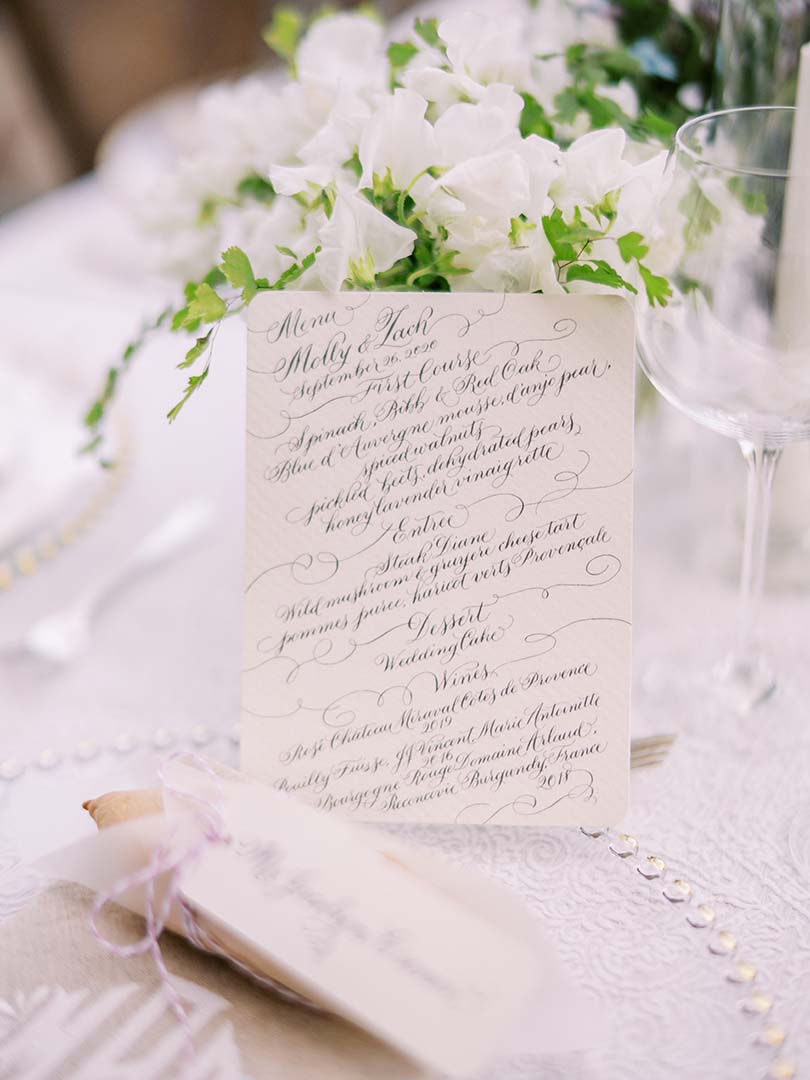 Menu
Molly & Zach
September 26, 2020
First Course
Spinach, Bibb & Red Oak
Blue d'Auvergne mousse, d'anjo pear,
spiced walnuts
pickled beets, dehydrated pears,
honey lavender vinaigrette
Entrée
Steak Diane
Wild mushroom & gruyere cheese tart
pommes puree, haricot verts Provençale
Dessert
Wedding Cake
Wines
Rosé Château Miraval Côtes de Provence
2019
Pouilly Fuisse, JJ Vincent Marie Antoinette
2016
Bourgogne Rouge Domaine Arlaud,
Burgundy, France
2018